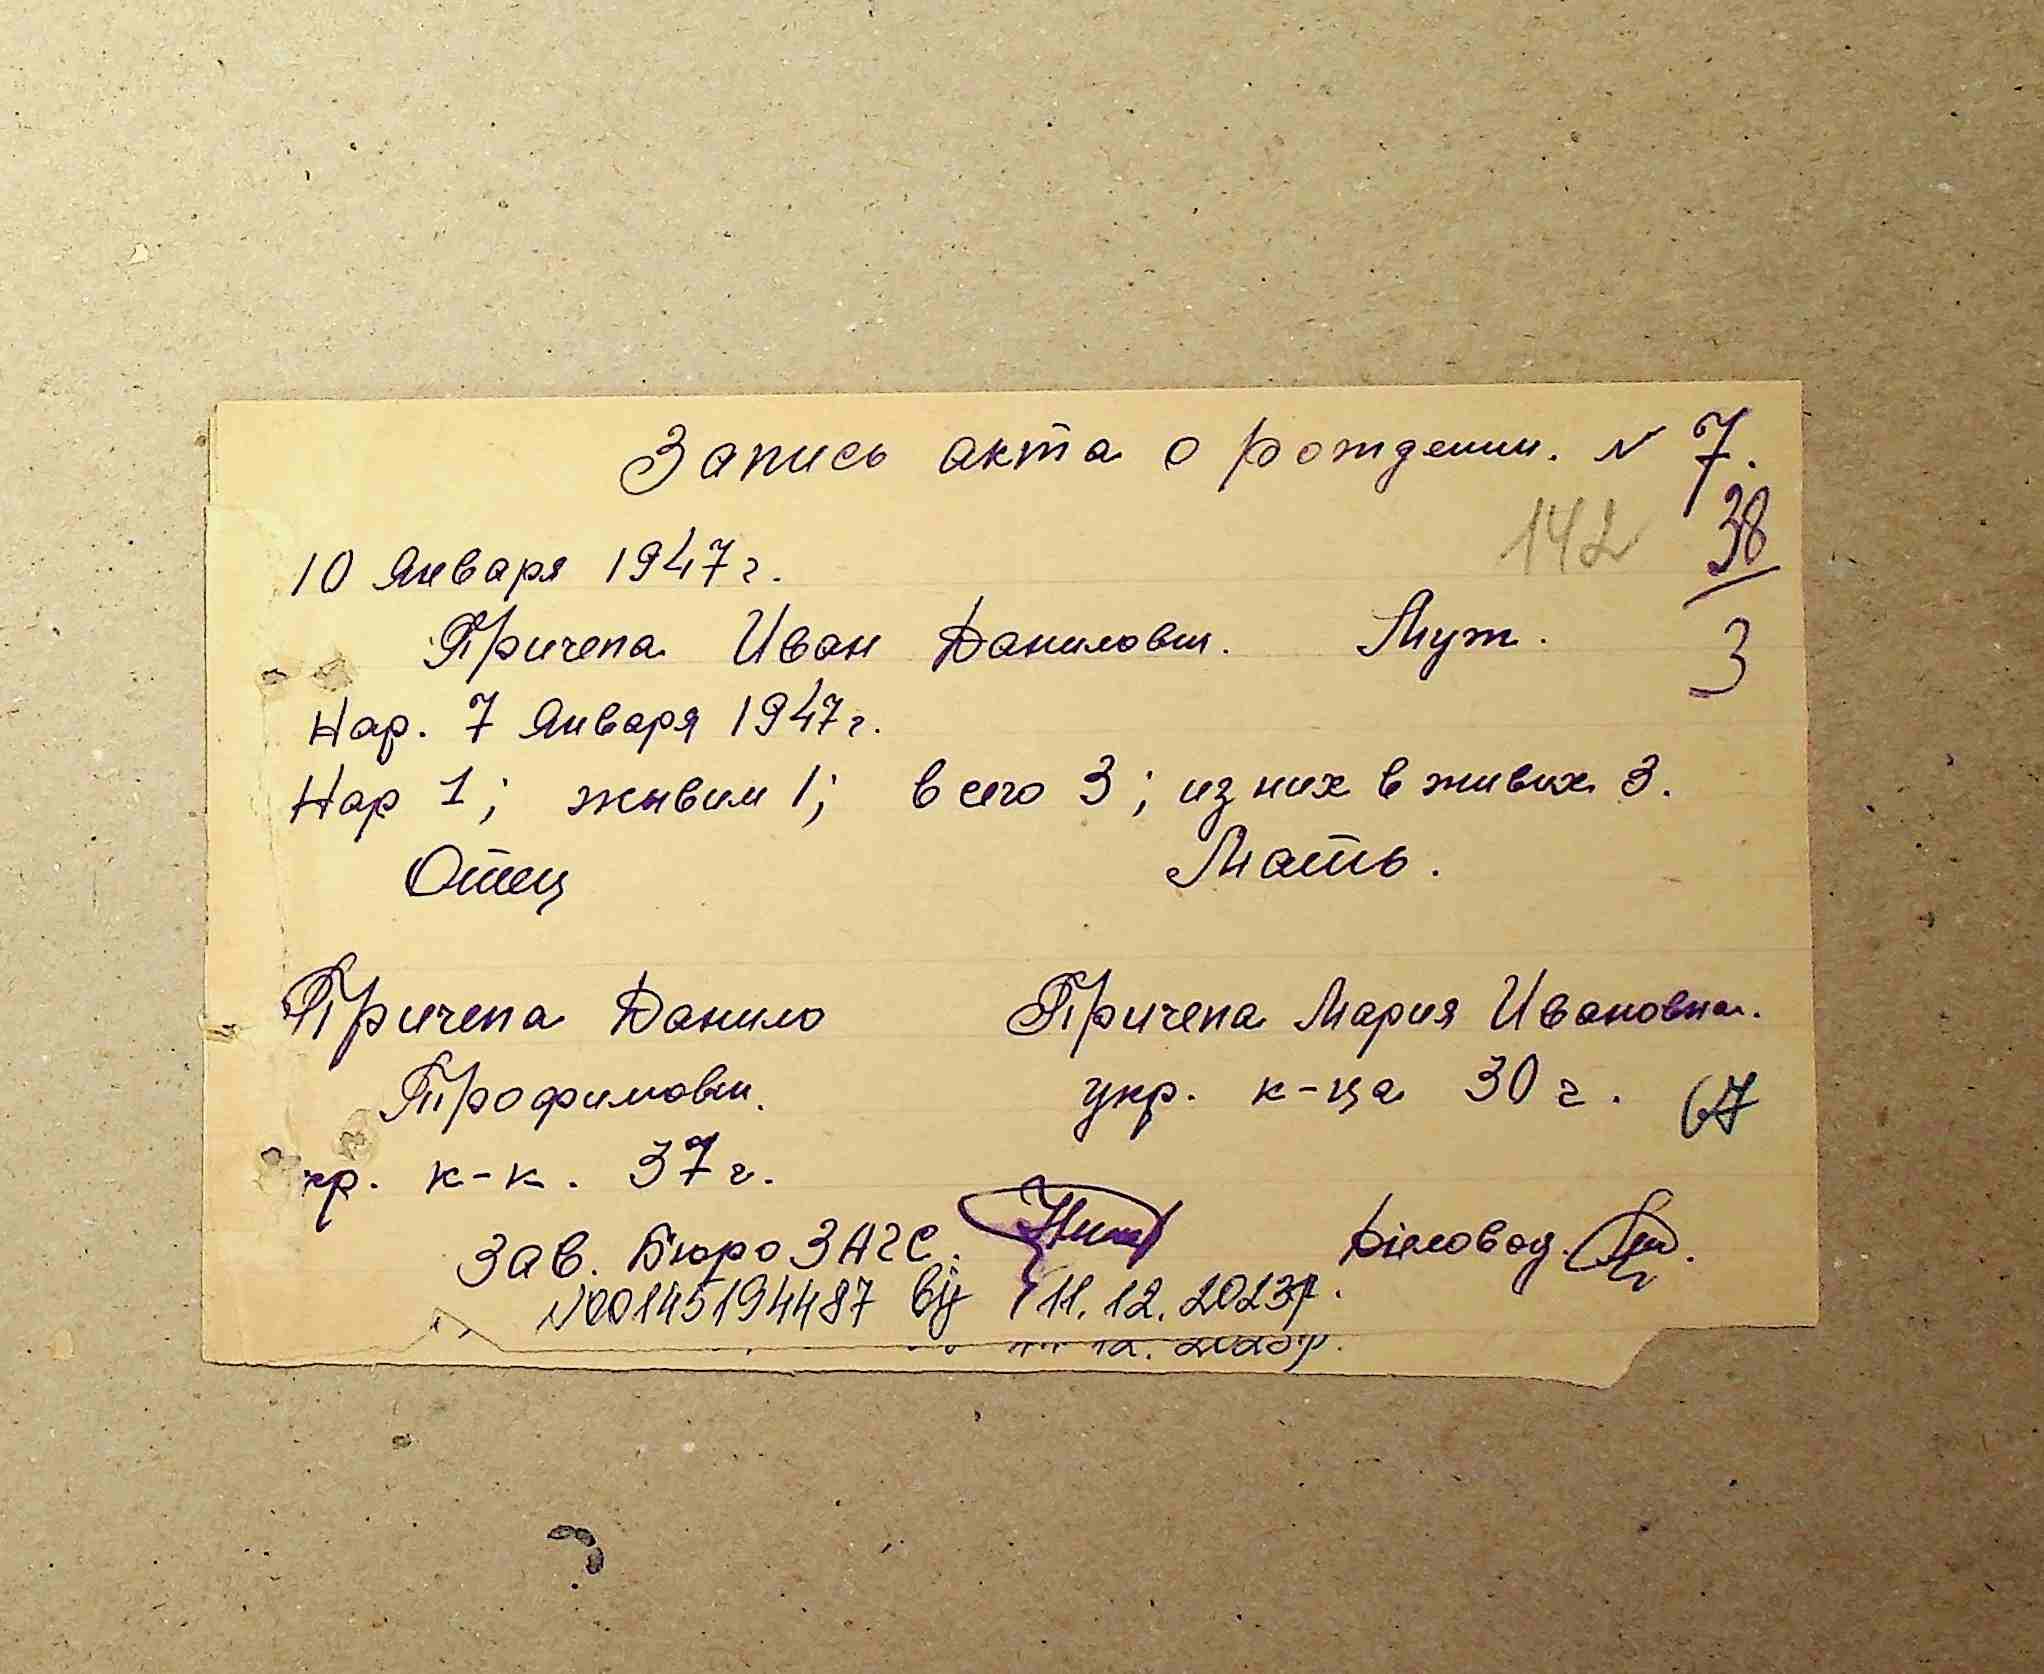 Запись акта о рождении. N 7.
142 38
10 Января 1947 г.
Причепа Иван Данилович. Муж. 3
Нар. 7 Января 1947 г.
Нар 1; жывим 1; всего 3; из них в живих 3.
Отец Мать.
Причепа Данило Причепа Мария Ивановна.
Трофимович. укр. к-ца 30 г. 67
кр. к-к. 37 г.
Зав. Бюро ЗАГС. Діловод.
N00145194487 від 11.12.2023р.
12. 2023р.